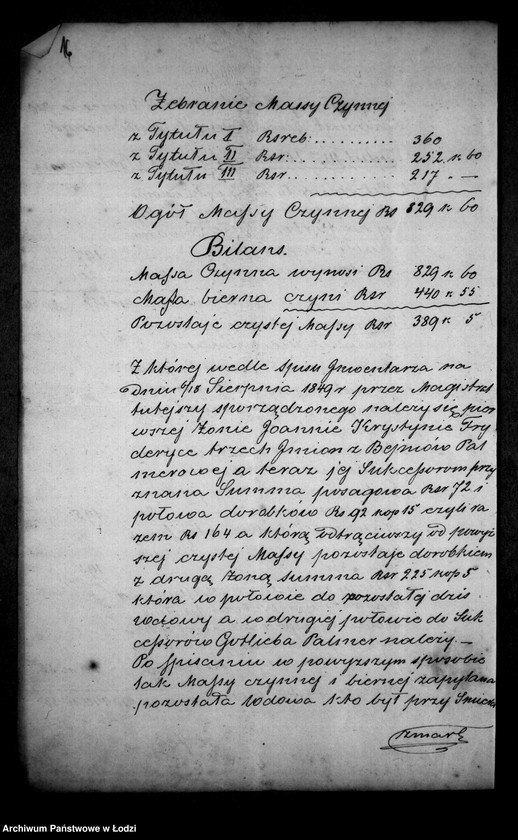 16
Zebranie Massy Czynnej
z Tytułu I Rsreb: .......... 360
z Tytułu II Rsr: .......... 252 k 60
z Tytułu III Rsr .......... 217 „ —
Ogół Massy Czynnej Rs 829 k 60
Bilans.
Massa Czynna wynosi Rs 829 k 60
Massa bierna czyni Rsr 440 k 55
Pozostaje czystej Massy Rsr 389 k 5
Z której wedle spisu Inwentarza na
Dniu 6/18 Sierpnia 1849 r przez Magistrat
tutejszy sporządzonego należy się pier
wszej Żonie Joannie Krystynie Fry
deryce trzech Imion z Bejmów Pal
merowej a teraz jej Sukcessorom przy
znana Summa posagowa Rsr 72 i
połowa dorobków Rs 92 kop 15 czyli ra
zem Rs 164 a którą odtrąciwszy od powyż
szej czystej Massy pozostaje dorobkiem
z drugą żoną summa Rsr 225 kop 5
która w połowie do pozostałej dziś
wdowy a w drugiej połowie do Suk
cessorów Gotlieba Palmer należy. —
Po spisaniu w powyższym sposobie
tak Massy czynnej i biernej zapytana
pozostała wdowa kto był przy
zmarł
Archiwum Państwowe w Łodzi